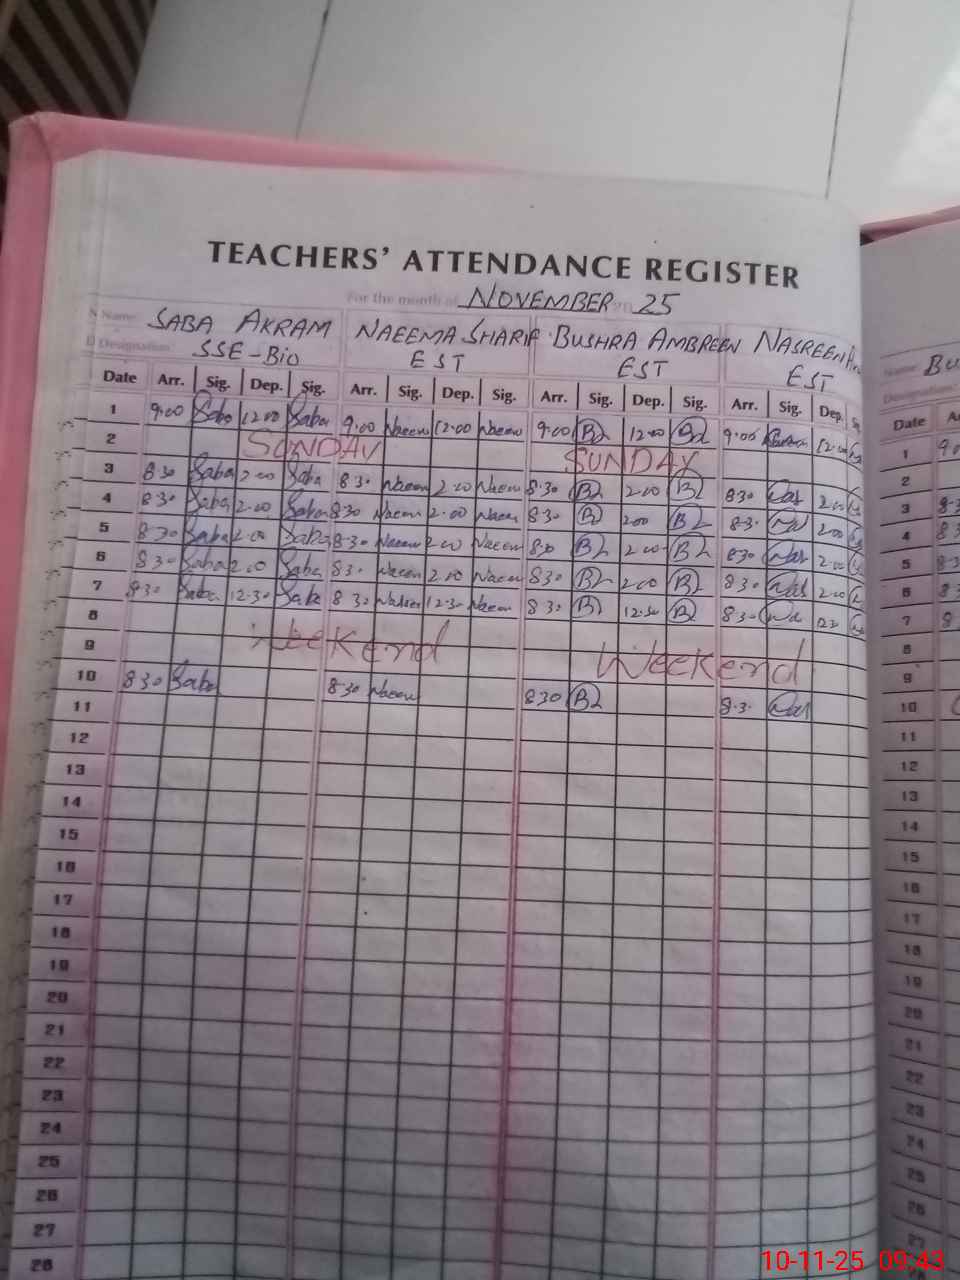 TEACHERS' ATTENDANCE REGISTER
For the month of NOVEMBER 20 25
Name: SABA AKRAM NAEEMA SHARIF BUSHRA AMBREEN NASREEN
Designation: SSE-Bio EST EST EST
Date Arr. Sig. Dep. Sig. Arr. Sig. Dep. Sig. Arr. Sig. Dep. Sig. Arr. Sig. Dep.
1 9.00 Saba 12.00 Saba 9.00 Naeem 12.00 Naeem 9.00 12.00 9.00 12.00
2 SUNDAY SUNDAY
3 8.30 Saba 2.00 Saba 8.30 Naeem 2.00 Naeem 8.30 2.00 8.30 Nas 2.00
4 8.30 Saba 2.00 Saba 8.30 Naeem 2.00 Naeem 8.30 2.00 8.3. 2.00
5 8.30 Saba 2.00 Saba 8.30 Naeem 2.00 Naeem 8.30 2.00 8.30 Nas 2.00
6 8.30 Saba 2.00 Saba 8.30 Naeem 2.00 Naeem 8.30 2.00 8.30 Nas 2.00
7 8.30 Saba 12.30 Saba 8.30 Naeem 12.30 Naeem 8.30 12.30 8.30
8
9 Weekend Weekend
10 8.30 Saba 8.30 Naeem 8.30 8.3. Nas
11
12
13
14
15
16
17
18
19
20
21
22
23
24
25
26
27
28
Name: Bu
Designation:
Date
1
2
3
4
5
6
7
8
9
10
11
12
13
14
15
16
17
18
19
20
21
22
23
24
25
26
27
10-11-25 09:43